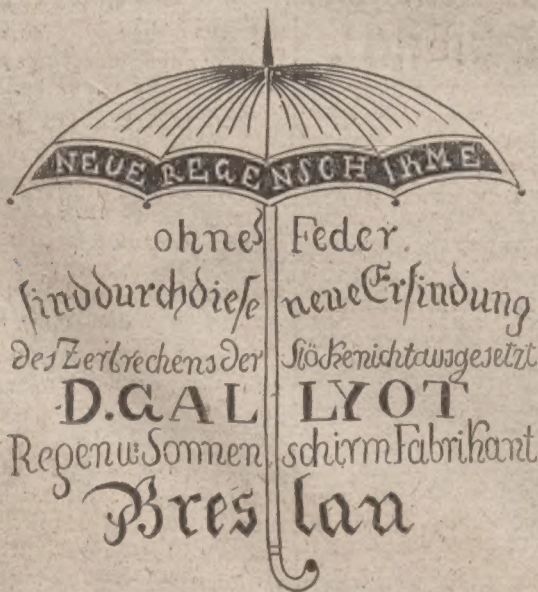 NEUE REGENSCHIRME
ohne Feder.
sind durch diese neue Erfindung
des Zerbrechens der Stöcke nicht ausgesetzt
D. GALLYOT
Regen u: Sonnenschirm Fabrikant
Breslau